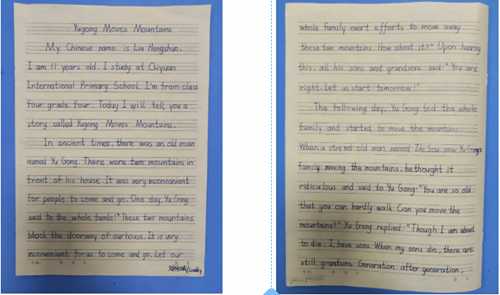 Yugong Moves Mountains
My Chinese name is Liu Hongshun.
I am 11 years old. I study at Chiyuan
International Primary School. I'm from class
four grade four. Today I will tell you a
story called Yugong Moves Mountains.
In ancient times, there was an old man
named Yu Gong. There were two mountains in
front of his house. It was very inconvenient
for people to come and go. One day, Yu Gong
said to the whole family: "These two mountains
block the doorway of our house. It is very
inconvenient for us to come and go. Let our
whole family exert efforts to move away
these two mountains. How about it?" Upon hearing
this, all his sons and grandsons said: "You are
right. Let us start tomorrow!"
The following day, Yu Gong led the whole
family and started to move the mountains.
When a shrewd old man named Zhi Sou saw Yu Gong's
family moving the mountains, he thought it
ridiculous and said to Yu Gong: "You are so old
that you can hardly walk. Can you move the
mountains?" Yu Gong replied: "Though I am about
to die, I have sons. When my sons die, there are
still grandsons. Generation after generation,